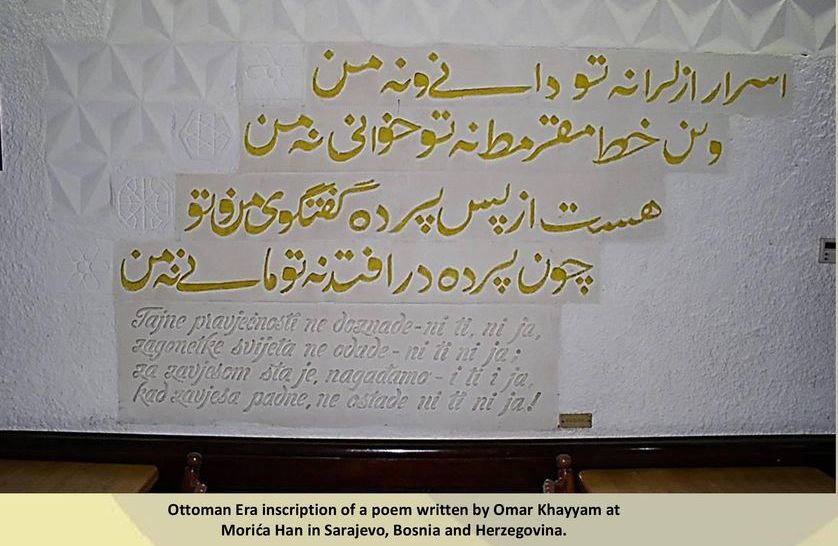 اسرار ازلرا نه تو دانے ونه من
وین خط مقرمط نه تو خوانی نه من
هست از پس پرده گفتگوی من و تو
چون پرده درافتد نه تو مانے نه من
Tajne pravječnosti ne doznade - ni ti, ni ja,
zagonetke svijeta ne odade - ni ti ni ja;
za zavjesom šta je, nagađamo - i ti i ja,
kad zavjesa padne, ne ostade ni ti ni ja!
Ottoman Era inscription of a poem written by Omar Khayyam at
Morića Han in Sarajevo, Bosnia and Herzegovina.